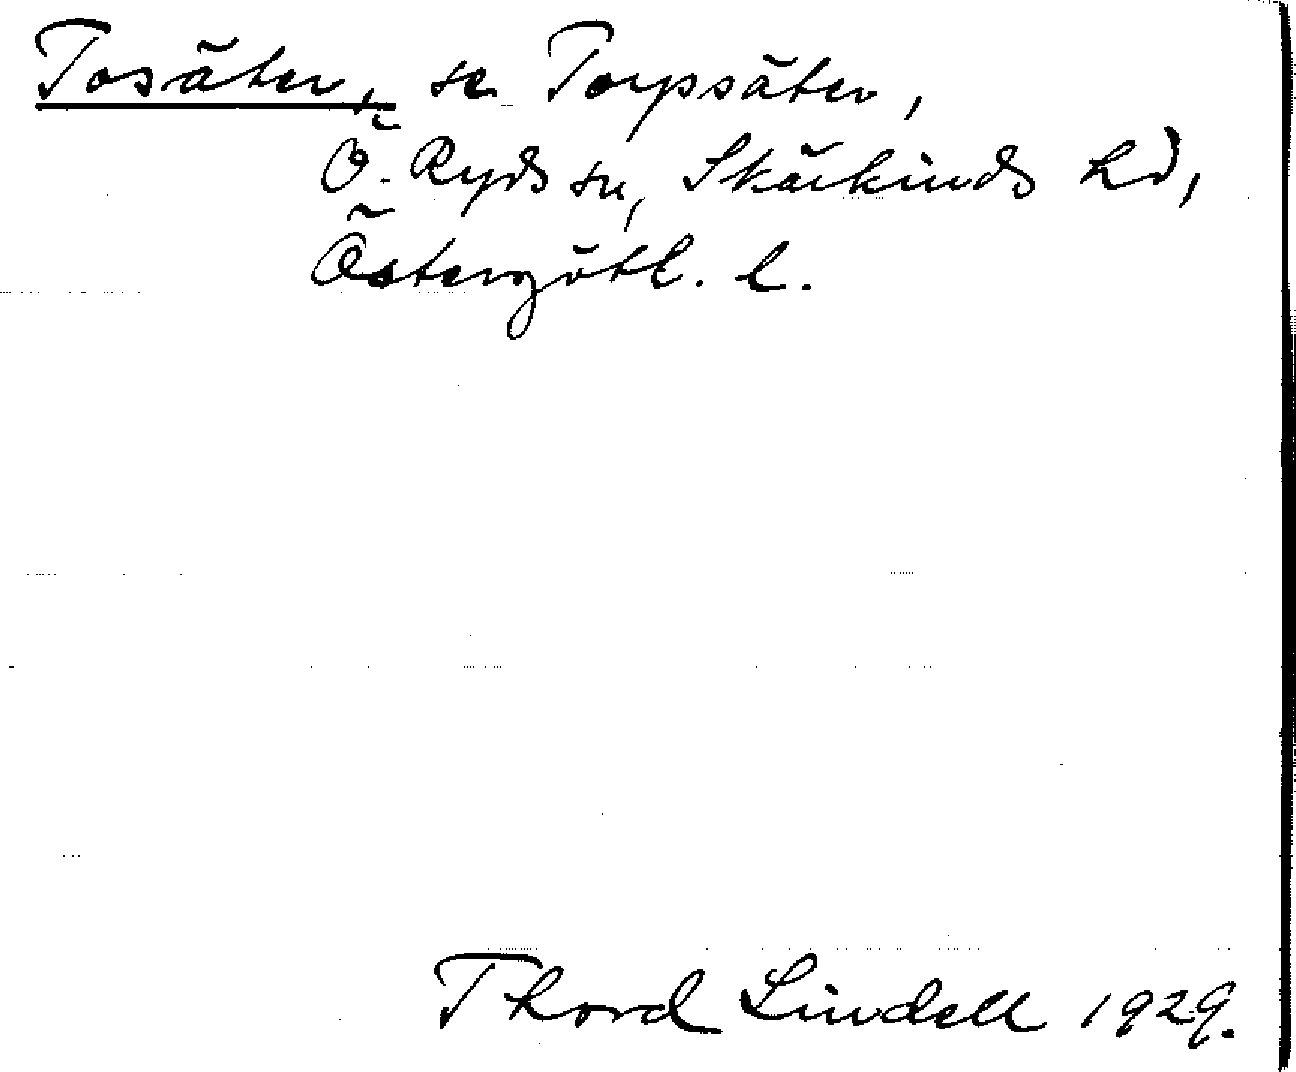 Tosäter, se Torpsäter,
Ö. Ryds sn, Skärkinds hd,
Östergötl. l.
Thord Lindell 1929.